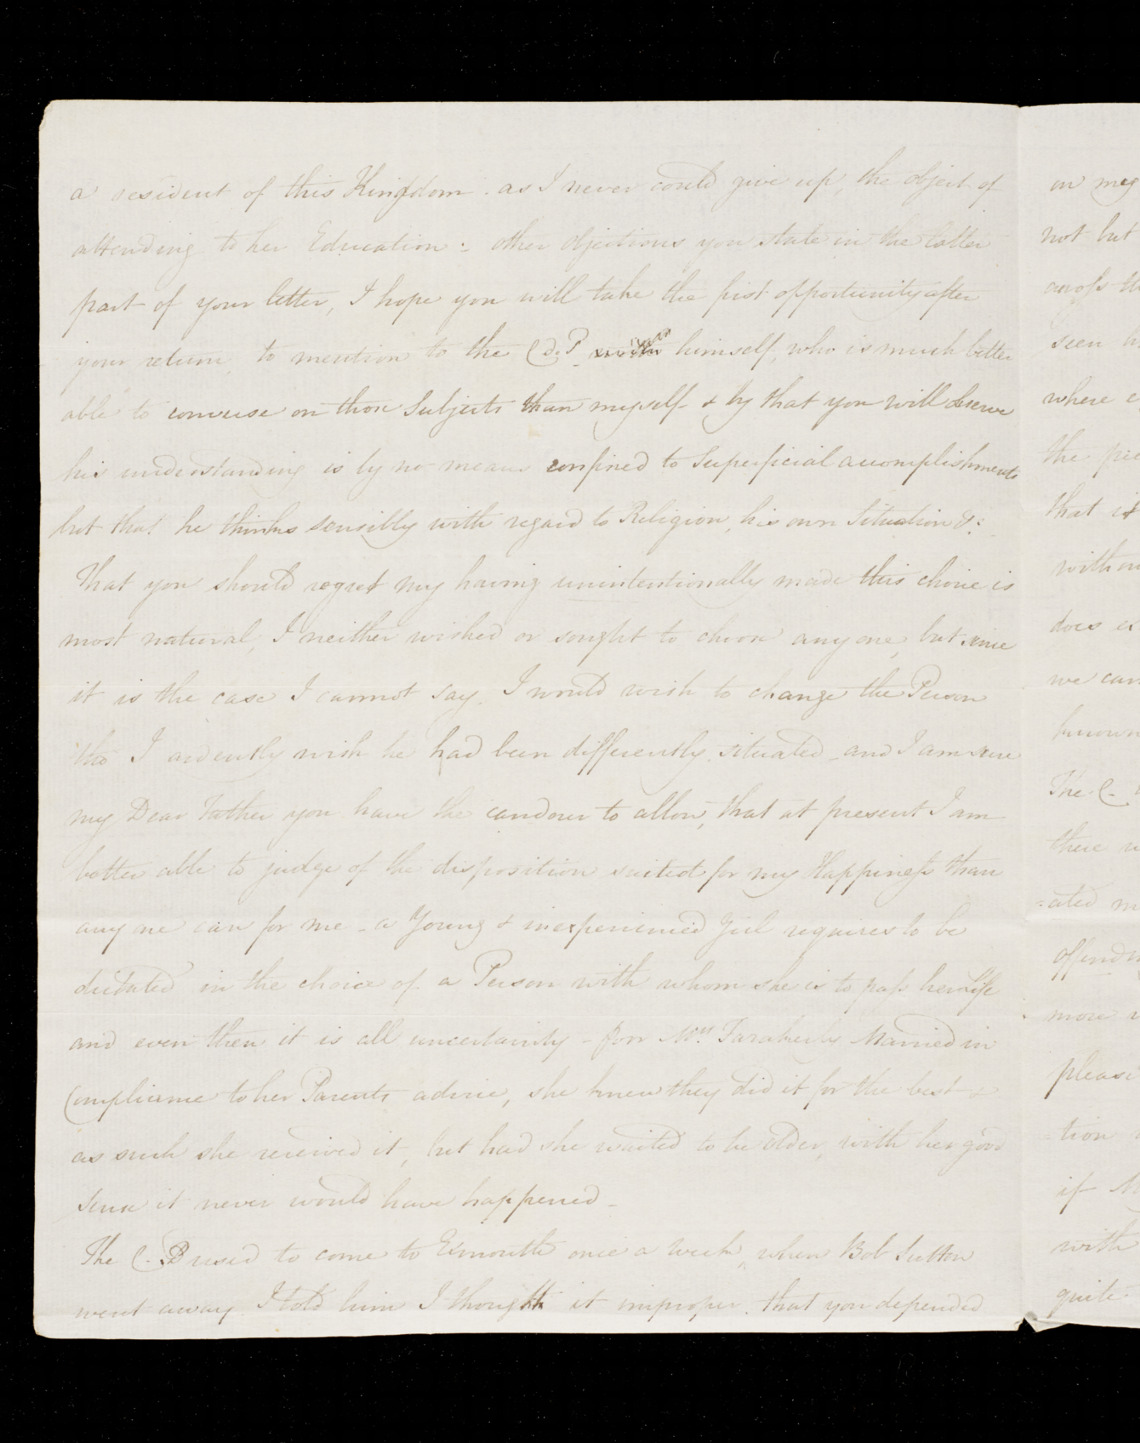 a resident of this Kingdom. as I never could give up the object of
attending to her Education: other objections you state in the latter
part of your letter, I hope you will take the first opportunity after
your return, to mention to the C. d. P. himself, who is much better
able to converse on those Subjects than myself & by that you will
his understanding is by no means confined to Superficial accomplishments
but that he thinks sensibly with regard to Religion, his own Situation &c:
That you should regret my having unintentionally made this choice is
most natural, I neither wished or sought to choose any one, but since
it is the case I cannot say, I would wish to change the Person
tho' I ardently wish he had been differently situated - and I am sure
my Dear Father you have the candour to allow, that at present I am
better able to judge of the disposition suited for my Happiness than
any one can for me - a Young & inexperienced Girl requires to be
dictated in the choice of a Person with whom she is to pass her life
and even then it is all uncertainty - Mrs. Married in
Compliance to her Parents advice, she knew they did it for the best &
as such she received it, but had she waited to be older, with her good
sense it never would have happened -
The C. P used to come to Exmouth once a week, when Bob Sutton
went away. I told him I thought it improper. that you depended
on my
not but
across th
seen h
where
the
that it
withou
does ex
we can
known
The C.
there
=ated m
offend
more
pleasi
tion
if
with
quite